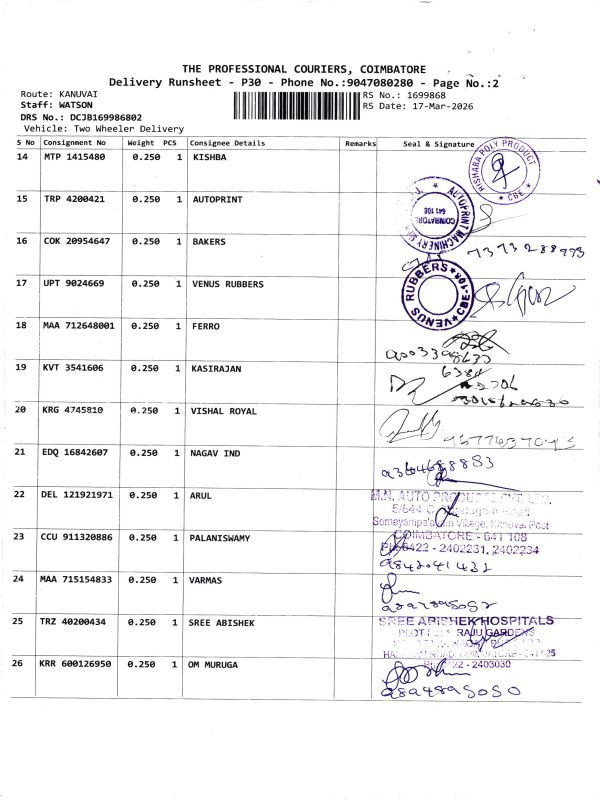 THE PROFESSIONAL COURIERS, COIMBATORE
Delivery Runsheet - P30 - Phone No.:9047080280 - Page No.:2
Route: KANUVAI
RS No.: 1699868
Staff: WATSON
RS Date: 17-Mar-2026
DRS No.: DCJB169986802
Vehicle: Two Wheeler Delivery
S No Consignment No Weight PCS Consignee Details Remarks Seal & Signature
14 MTP 1415480 0.250 1 KISHBA
HISHABA POLY PRODUCT * CBE *
15 TRP 4200421 0.250 1 AUTOPRINT
AUTOPRINT MACHINERY
COIMBATORE
641 108
16 COK 20954647 0.250 1 BAKERS
7373288993
17 UPT 9024669 0.250 1 VENUS RUBBERS
VENUS RUBBERS * CBE-108 *
18 MAA 712648001 0.250 1 FERRO
19 KVT 3541606 0.250 1 KASIRAJAN
20 KRG 4745810 0.250 1 VISHAL ROYAL
21 EDQ 16842607 0.250 1 NAGAV IND
22 DEL 121921971 0.250 1 ARUL
M.N. AUTO PRODUCTS PVT. LTD.
5/644-C, Road
Somayampalayam Village, Kanuvai Post
23 CCU 911320886 0.250 1 PALANISWAMY
COIMBATORE - 641 108
PH: 0422 - 2402231, 2402234
9842041432
24 MAA 715154833 0.250 1 VARMAS
25 TRZ 40200434 0.250 1 SREE ABISHEK
SREE ABISHEK HOSPITALS
RAJU GARDENS
26 KRR 600126950 0.250 1 OM MURUGA
2403030
9894895050